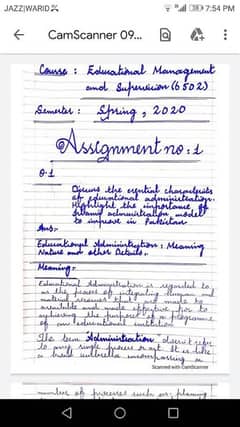 JAZZ|WARID
7:54 PM
CamScanner 09...
Course : Educational Management
and Supervision (6502)
Semester : Spring, 2020
Assignment no : 1
Q.1
Discuss the essential characterists
of educational administration.
Highlight the importance of
Islamic administration model
to improve in Pakistan
Ans:-
Educational Administration : Meaning
Nature and other Details.
Meaning:-
Educational Administration is regarded to
as the process of integrating human and
material resources that are made to
available and made effective for to
achieving the purposes of a programme
of an educational institution
The term "Administration" doesn't refer
to any single process or act. It is like
a broad umbrella encompassing a
Scanned with CamScanner
number of processes such as; planning